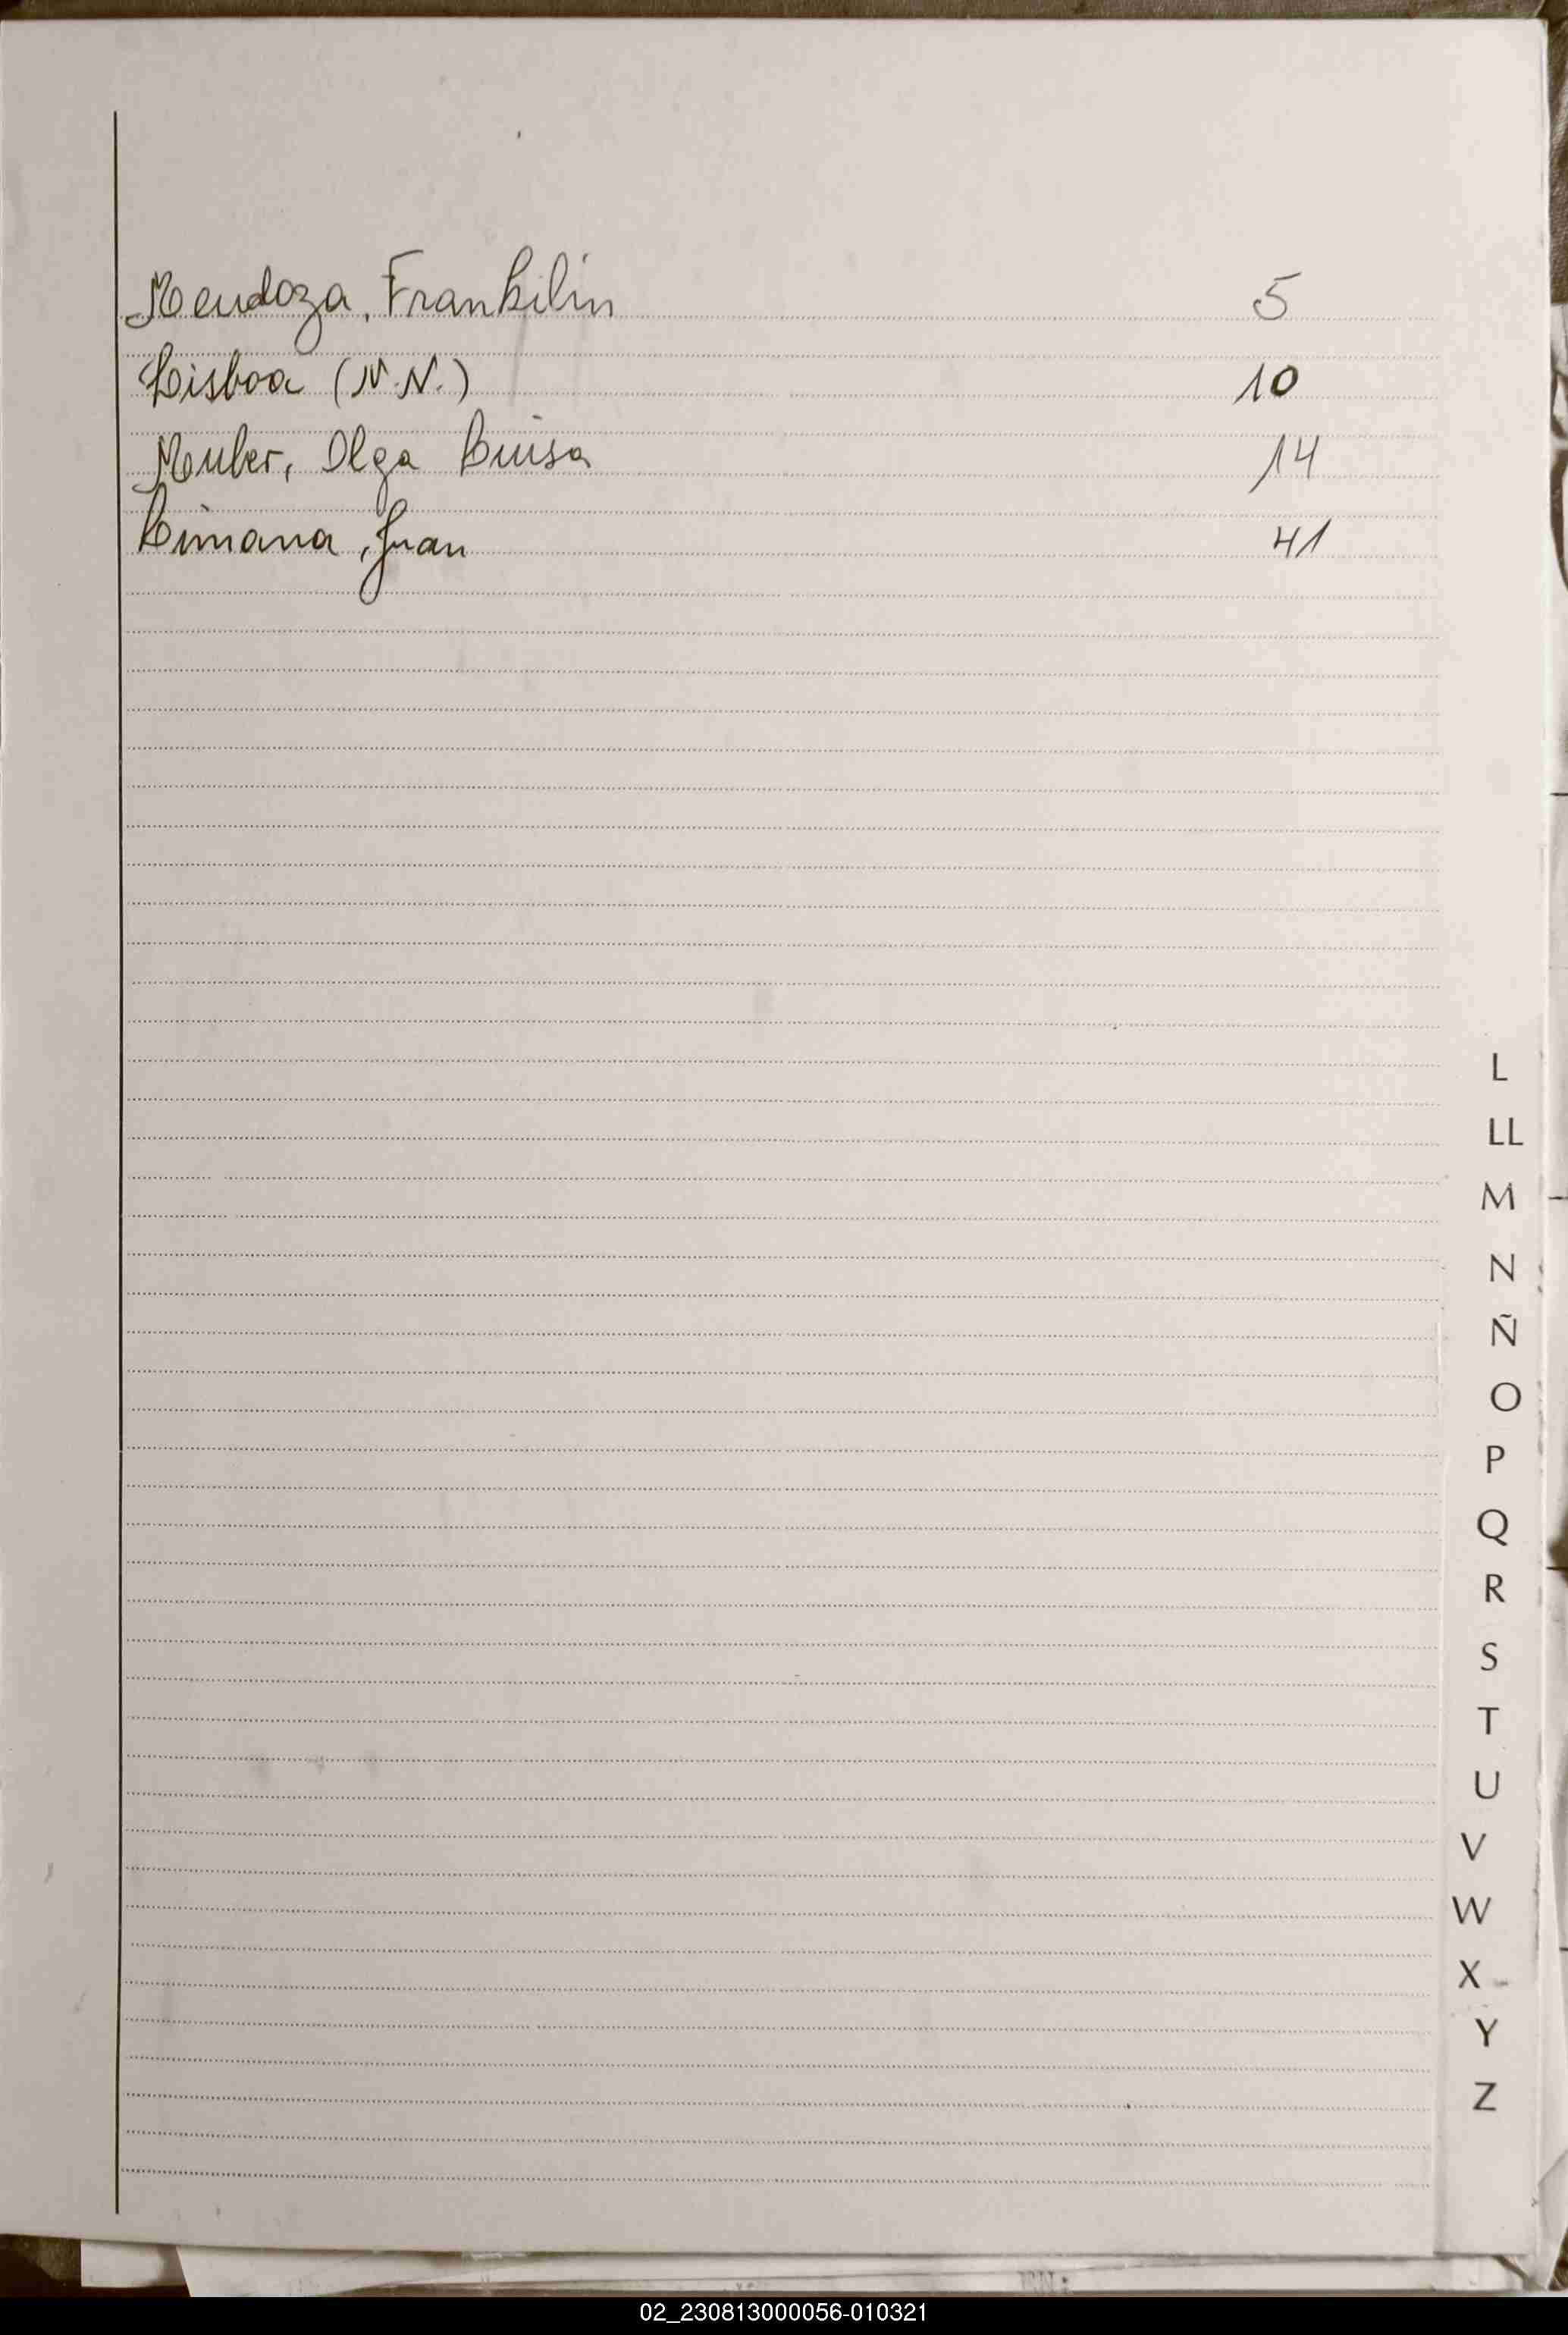 Mendoza, Frankilin 5
Lisboa (N.N.) 10
Muler, Olga Luisa 14
Limana, Juan 41
L
LL
M
N
Ñ
O
P
Q
R
S
T
U
V
W
X
Y
Z
02_230813000056-010321